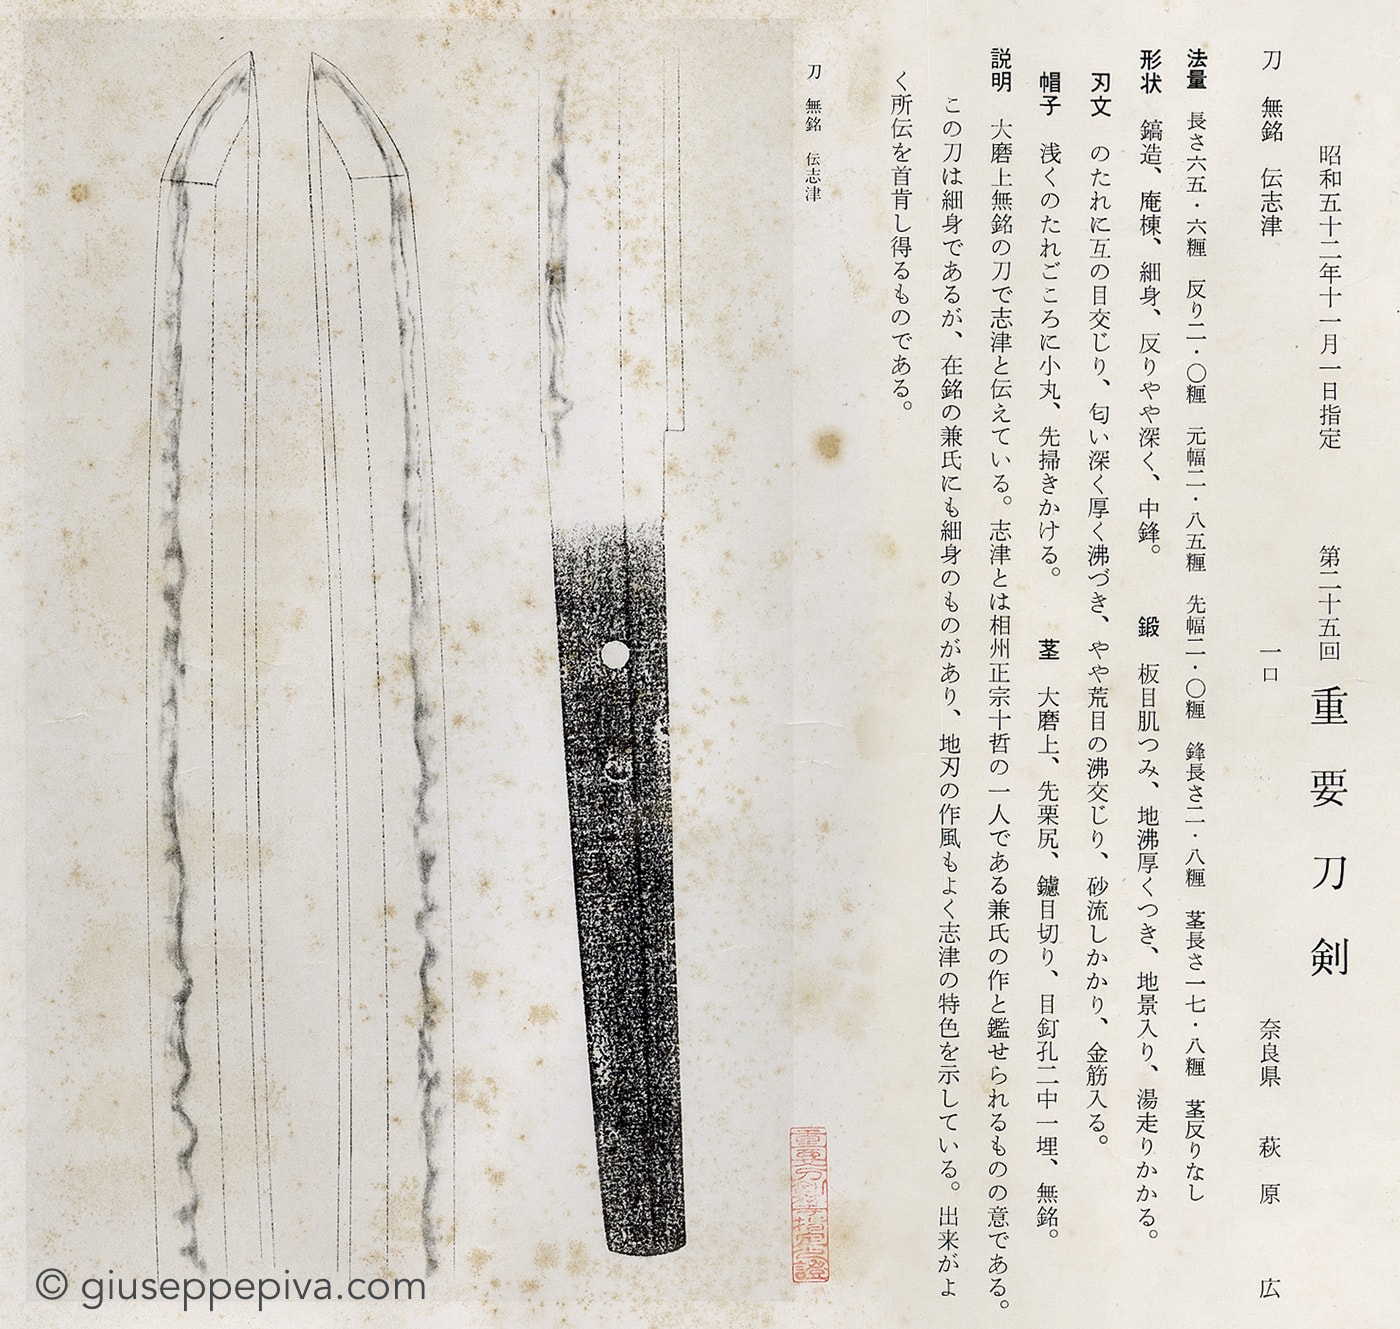 昭和五十二年十一月一日指定　第二十五回　重要刀剣
刀　無銘　伝志津　一口　奈良県　萩原　広
法量　長さ六五・六糎　反り二・〇糎　元幅二・八五糎　先幅二・〇糎　鋒長さ二・八糎　茎長さ一七・八糎　茎反りなし
形状　鎬造、庵棟、細身、反りやや深く、中鋒。　鍛　板目肌つみ、地沸厚くつき、地景入り、湯走りかかる。
刃文　のたれに互の目交じり、匂い深く厚く沸づき、やや荒目の沸交じり、砂流しかかり、金筋入る。
帽子　浅くのたれごころに小丸、先掃きかける。　茎　大磨上、先栗尻、鑢目切り、目釘孔二中一埋、無銘。
説明　大磨上無銘の刀で志津と伝えている。志津とは相州正宗十哲の一人である兼氏の作と鑑せられるものの意である。
この刀は細身であるが、在銘の兼氏にも細身のものがあり、地刃の作風もよく志津の特色を示している。出来がよ
く所伝を首肯し得るものである。
刀　無銘　伝志津
重要刀剣等指定之證
© giuseppepiva.com